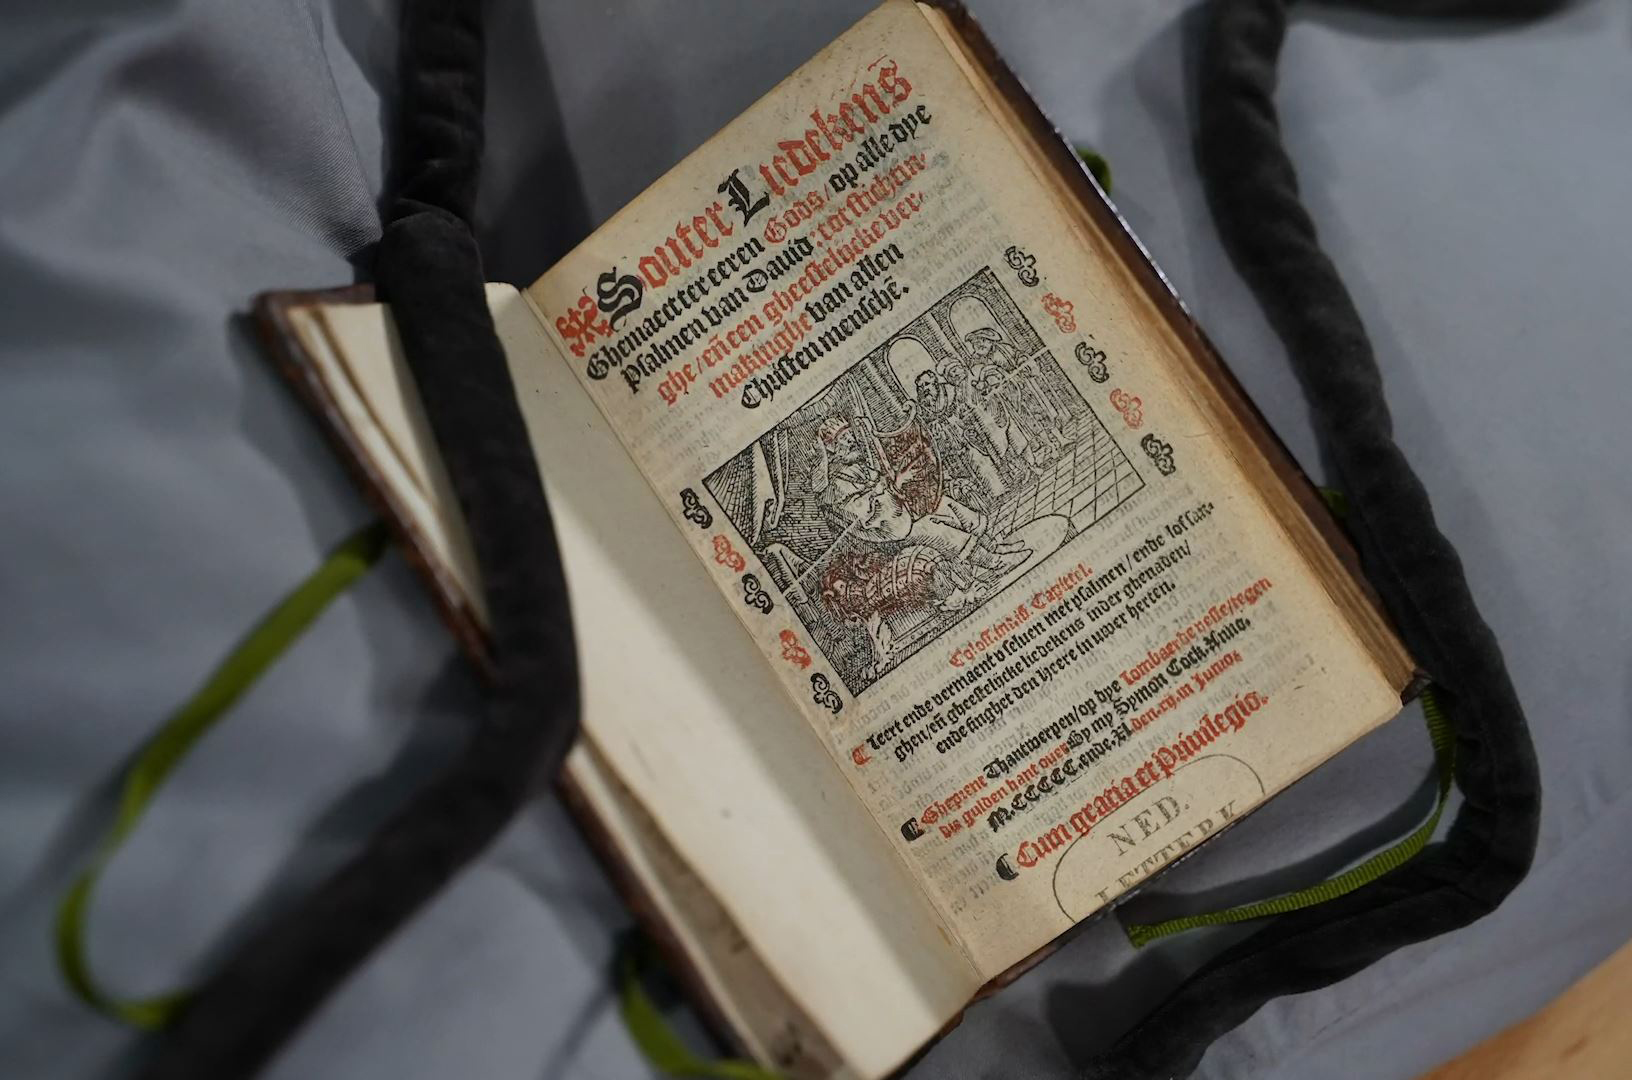 Souter Liedekens
Ghemaect ter eeren Gods / op alle dye
Psalmen van Dauid: tot stichtin-
ghe / eñ een gheestelijcke ver-
makinghe van allen
Christen menschẽ.
Coloss. iii. Capittel.
Leert ende vermaent v seluen met psalmen / ende lof san-
ghen / eñ gheestelijcke liedekens inder ghenaden /
ende singhet den Heere in uwer herten.
Gheprent Thantwerpen / op dye Lombaerde veste / tegen
die gulden hant ouer By my Symon Cock. Anno.
M.CCCCC. ende. XL. den. xij. in Junius
Cum gratia et Priuilegio.
NED.
LETTERK